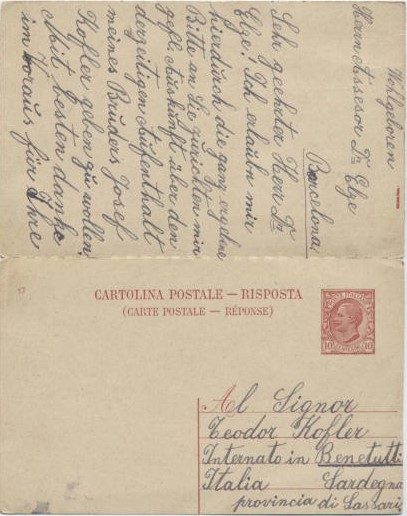 Wohlgeboren
Herrn Assesor Dr. Elze
Barcelona
Sehr geehrter Herr Dr.
Elze! Ich erlaube mir
hierdurch die ganz ergebene
Bitte an Sie zu richten mir
gefl. Auskunft über den
derzeitigen Aufenthalt
meines Bruders Josef
Kofler geben zu wollen.
Mit besten danke
im voraus für Ihre
CARTOLINA POSTALE — RISPOSTA
(CARTE POSTALE — RÉPONSE)
POSTE ITALIANE
10 CENTESIMI 10
Al Signor
Teodor Kofler
Internato in Benetutti
Italia Sardegna
provincia di Sassari